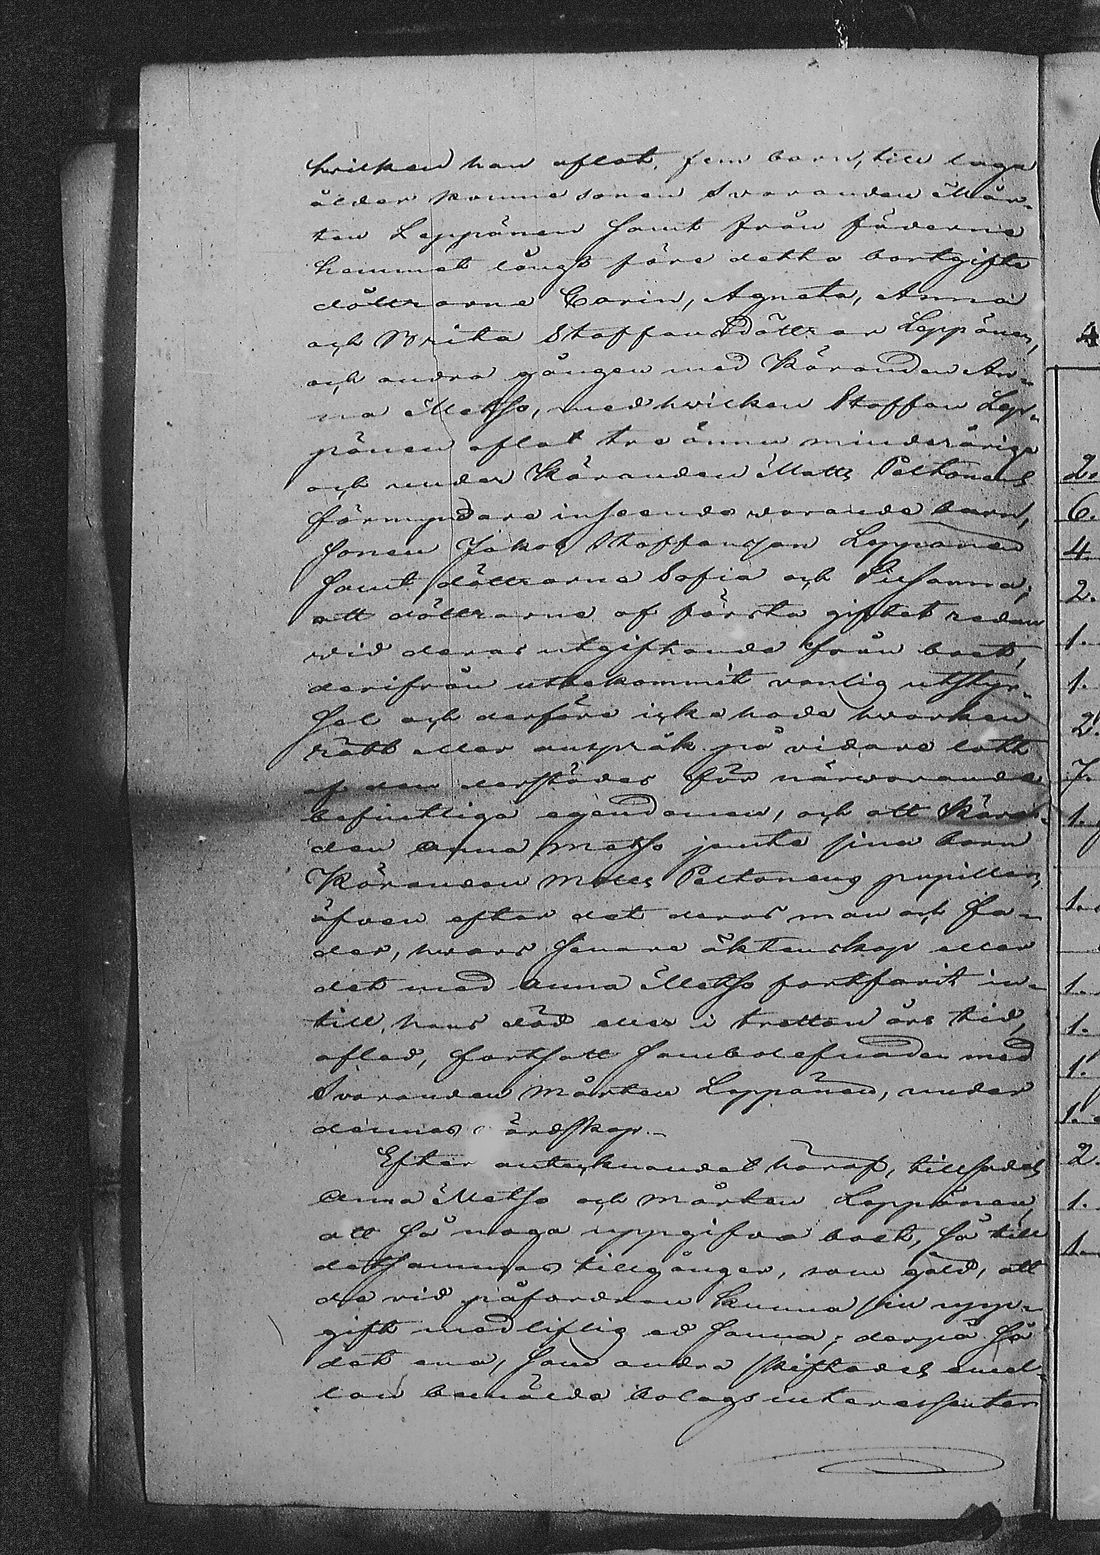 hvilken han aflat, fem barn, till laga
ålder komne sonen Svaranden Mår-
ten Leppänen samt från fäderne
hemmet långt före detta bortgifta
döttrarne Carin, Agneta, Anna
och Brita Staffansdöttrar Leppänen,
och andra gången med Käranden An-
na Metso, med hvilken Staffan Lep-
pänen aflat tre ännu minderåriga
och under Käranden Matts Peltonens
förmyndare inseende warande barn,
Sonen Jakob Staffansson Leppänen
samt döttrarne Sofia och Susanna;
att döttrarne af första giftet redan
wid deras utgiftande från boet,
derifrån utbekommit vanlig utstyr-
sel och derföre icke hade hwarken
rätt eller anspråk på vidare lott
af den derstädes för närwarande
befintliga egendomen, och att Käran-
den Anna Metso jemte sina barn
Käranden Matts Peltonens pupiller,
äfven efter det deras man och fa-
der, hvars senare äktenskap eller
det med Anna Metso fortfarit in-
till hans död eller i tretton års tid,
aflad, fortsatt sambolefnaden med
Svaranden Mårten Leppänen, under
dennas wårdskap.
Efter antecknandet häraf, tillsades
Anna Metso och Mårten Leppänen,
att så noga uppgifva boet, så till
detsammas tillgångar, som gäld, att
de vid påfordran kunna sin upp-
gift med liflig ed sanna; derpå så
det ena, som andra skiftades emel-
lan bemälde bolagsinteressenter
4
2.
6.
4
2.
1.
1.
2.
7.
1.
1.
1.
1.
1.
1.
2.
1.
1.